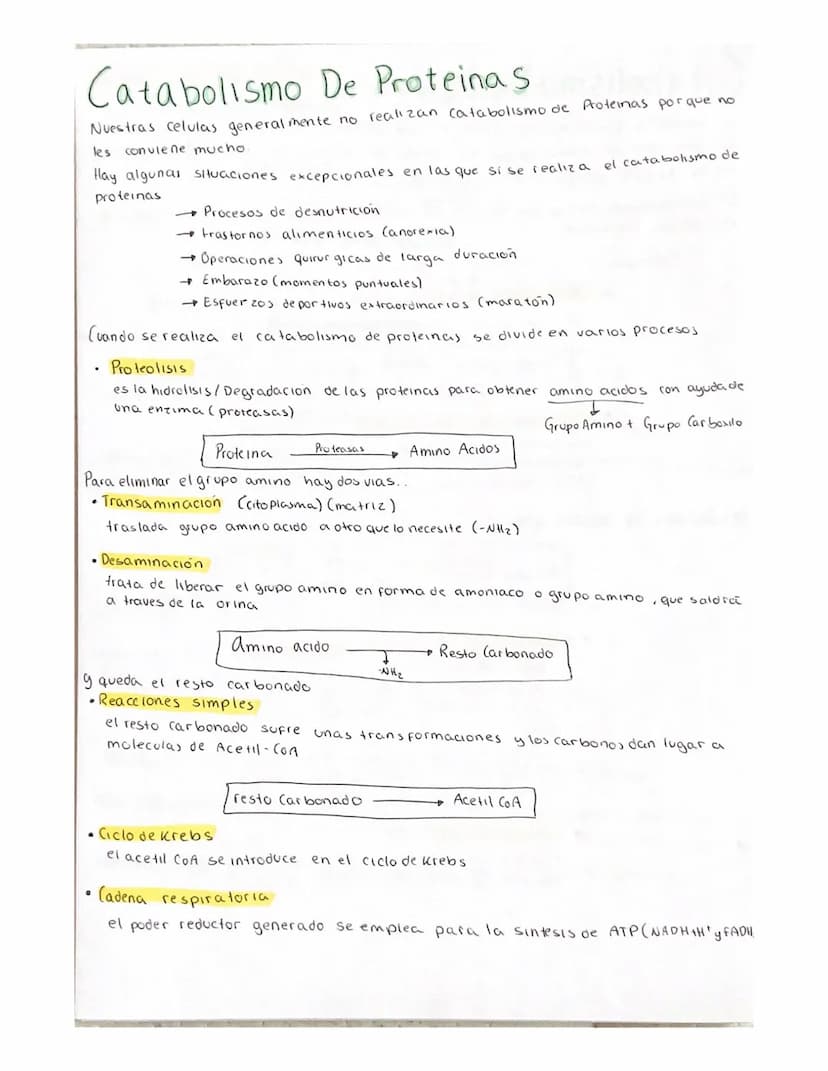 Catabolismo De Proteinas
Nuestras celulas generalmente no realizan catabolismo de Proteinas porque no
les conviene mucho.
Hay algunas situaciones excepcionales en las que si se realiza el catabolismo de
proteinas
→ Procesos de desnutrición
→ trastornos alimenticios (anorexia)
→ Operaciones quirurgicas de larga duración
→ Embarazo (momentos puntuales)
→ Esfuerzos deportivos extraordinarios (maratón)
Cuando se realiza el catabolismo de proteinas se divide en varios procesos
• Proteolisis
es la hidrolisis/Degradacion de las proteinas para obtener amino acidos con ayuda de
una enzima (proteasas)
↓
Grupo Amino + Grupo Carboxilo
Proteina Proteasas → Amino Acidos
Para eliminar el grupo amino hay dos vias..
• Transaminación (citoplasma) (matriz)
traslada grupo amino acido a otro que lo necesite (-NH2)
• Desaminación
trata de liberar el grupo amino en forma de amoniaco o grupo amino, que saldrá
a traves de la orina
Amino acido → Resto Carbonado
-NH2
y queda el resto carbonado
• Reacciones simples
el resto carbonado sufre unas transformaciones y los carbonos dan lugar a
moleculas de Acetil-CoA
resto Carbonado → Acetil CoA
• Ciclo de Krebs
el acetil CoA se introduce en el ciclo de Krebs
• Cadena respiratoria
el poder reductor generado se emplea para la sintesis de ATP (NADH+H⁺ y FADH